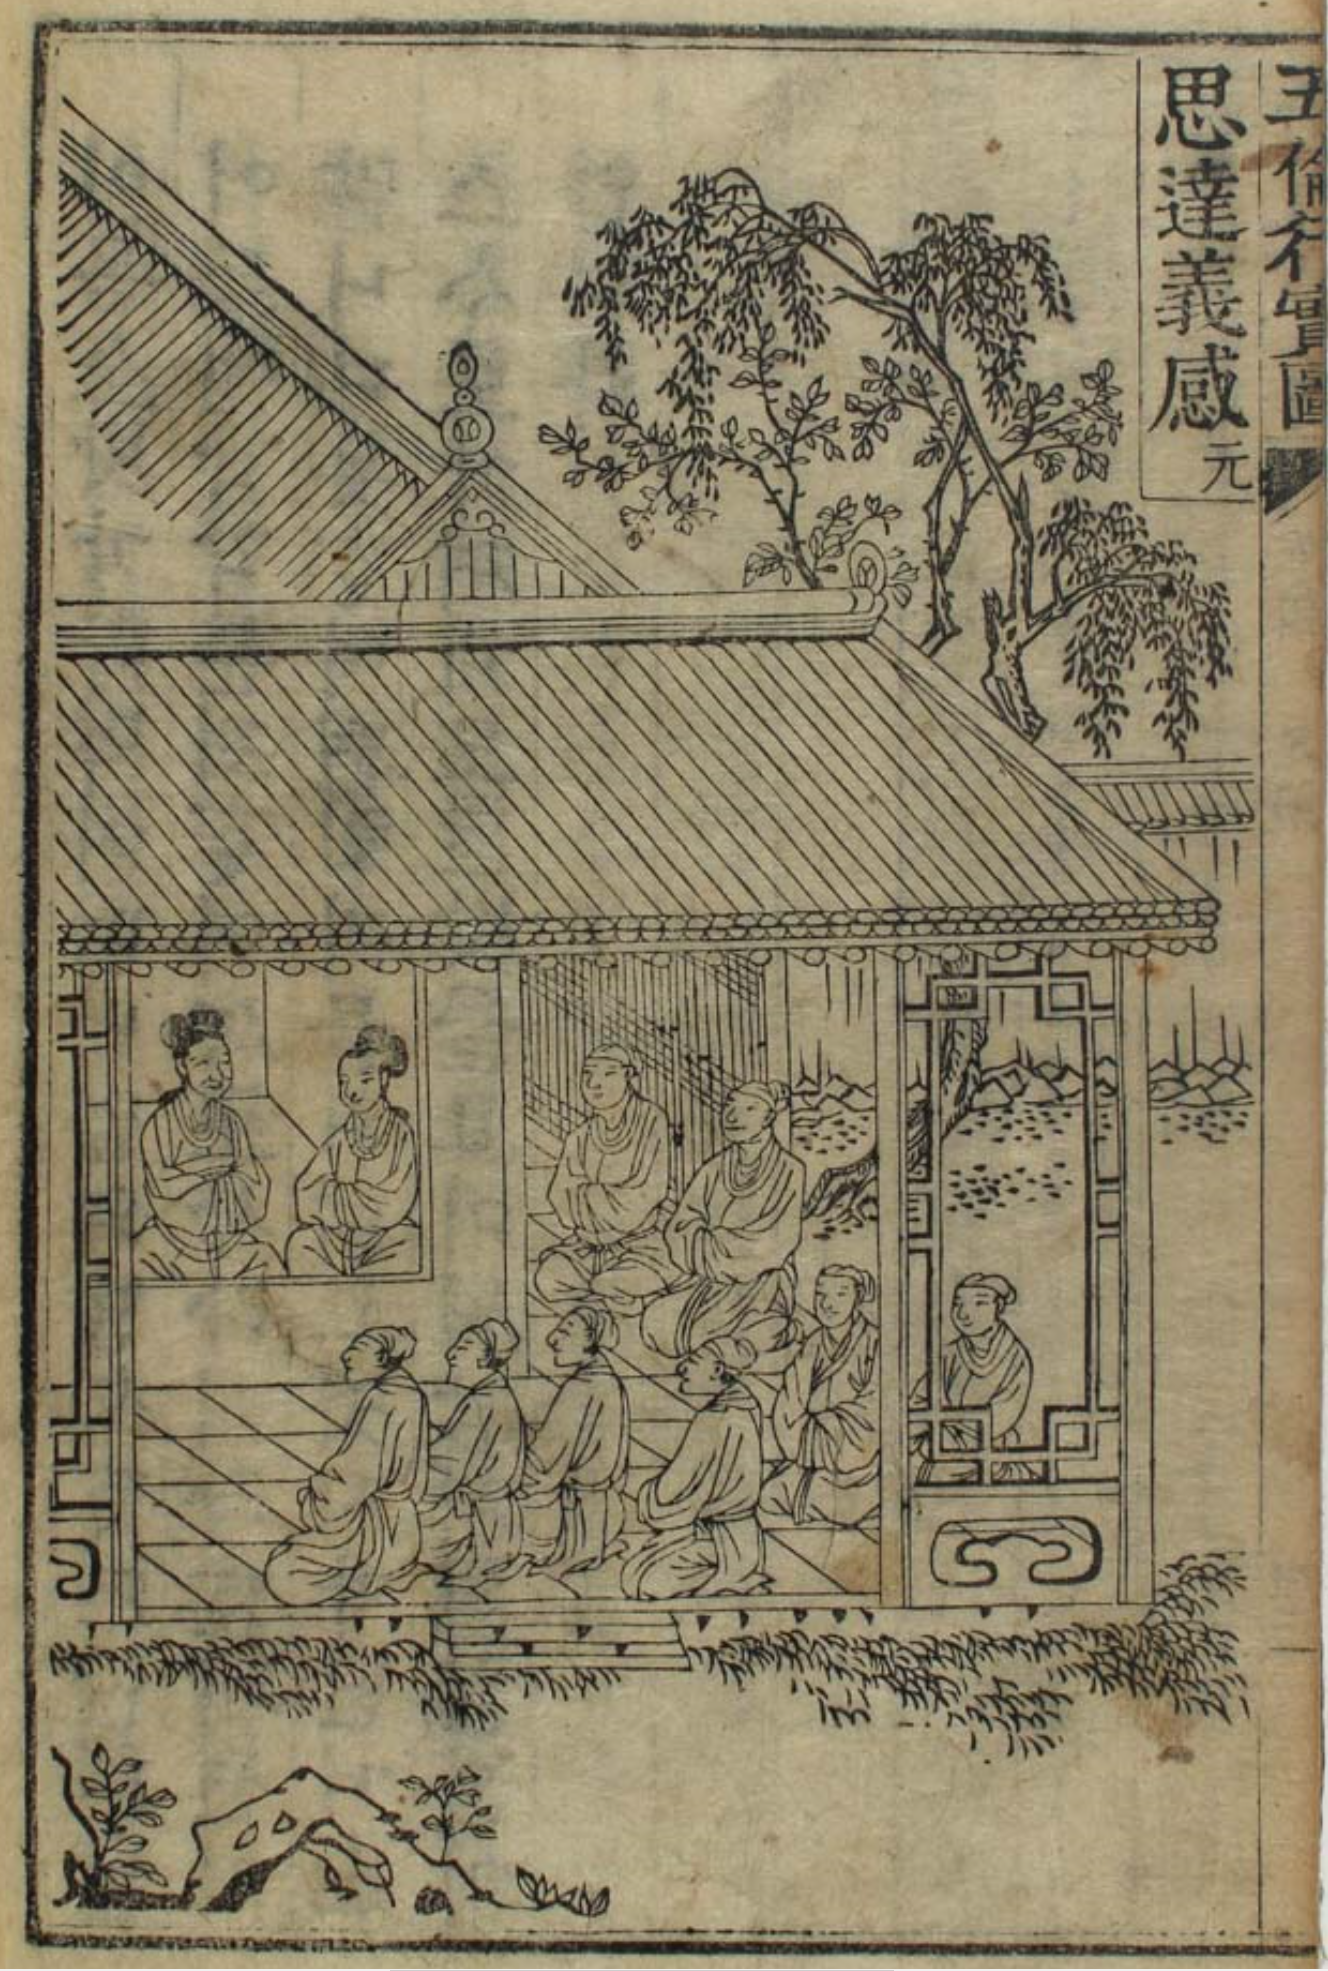 五倫行實圖
思達義感 元